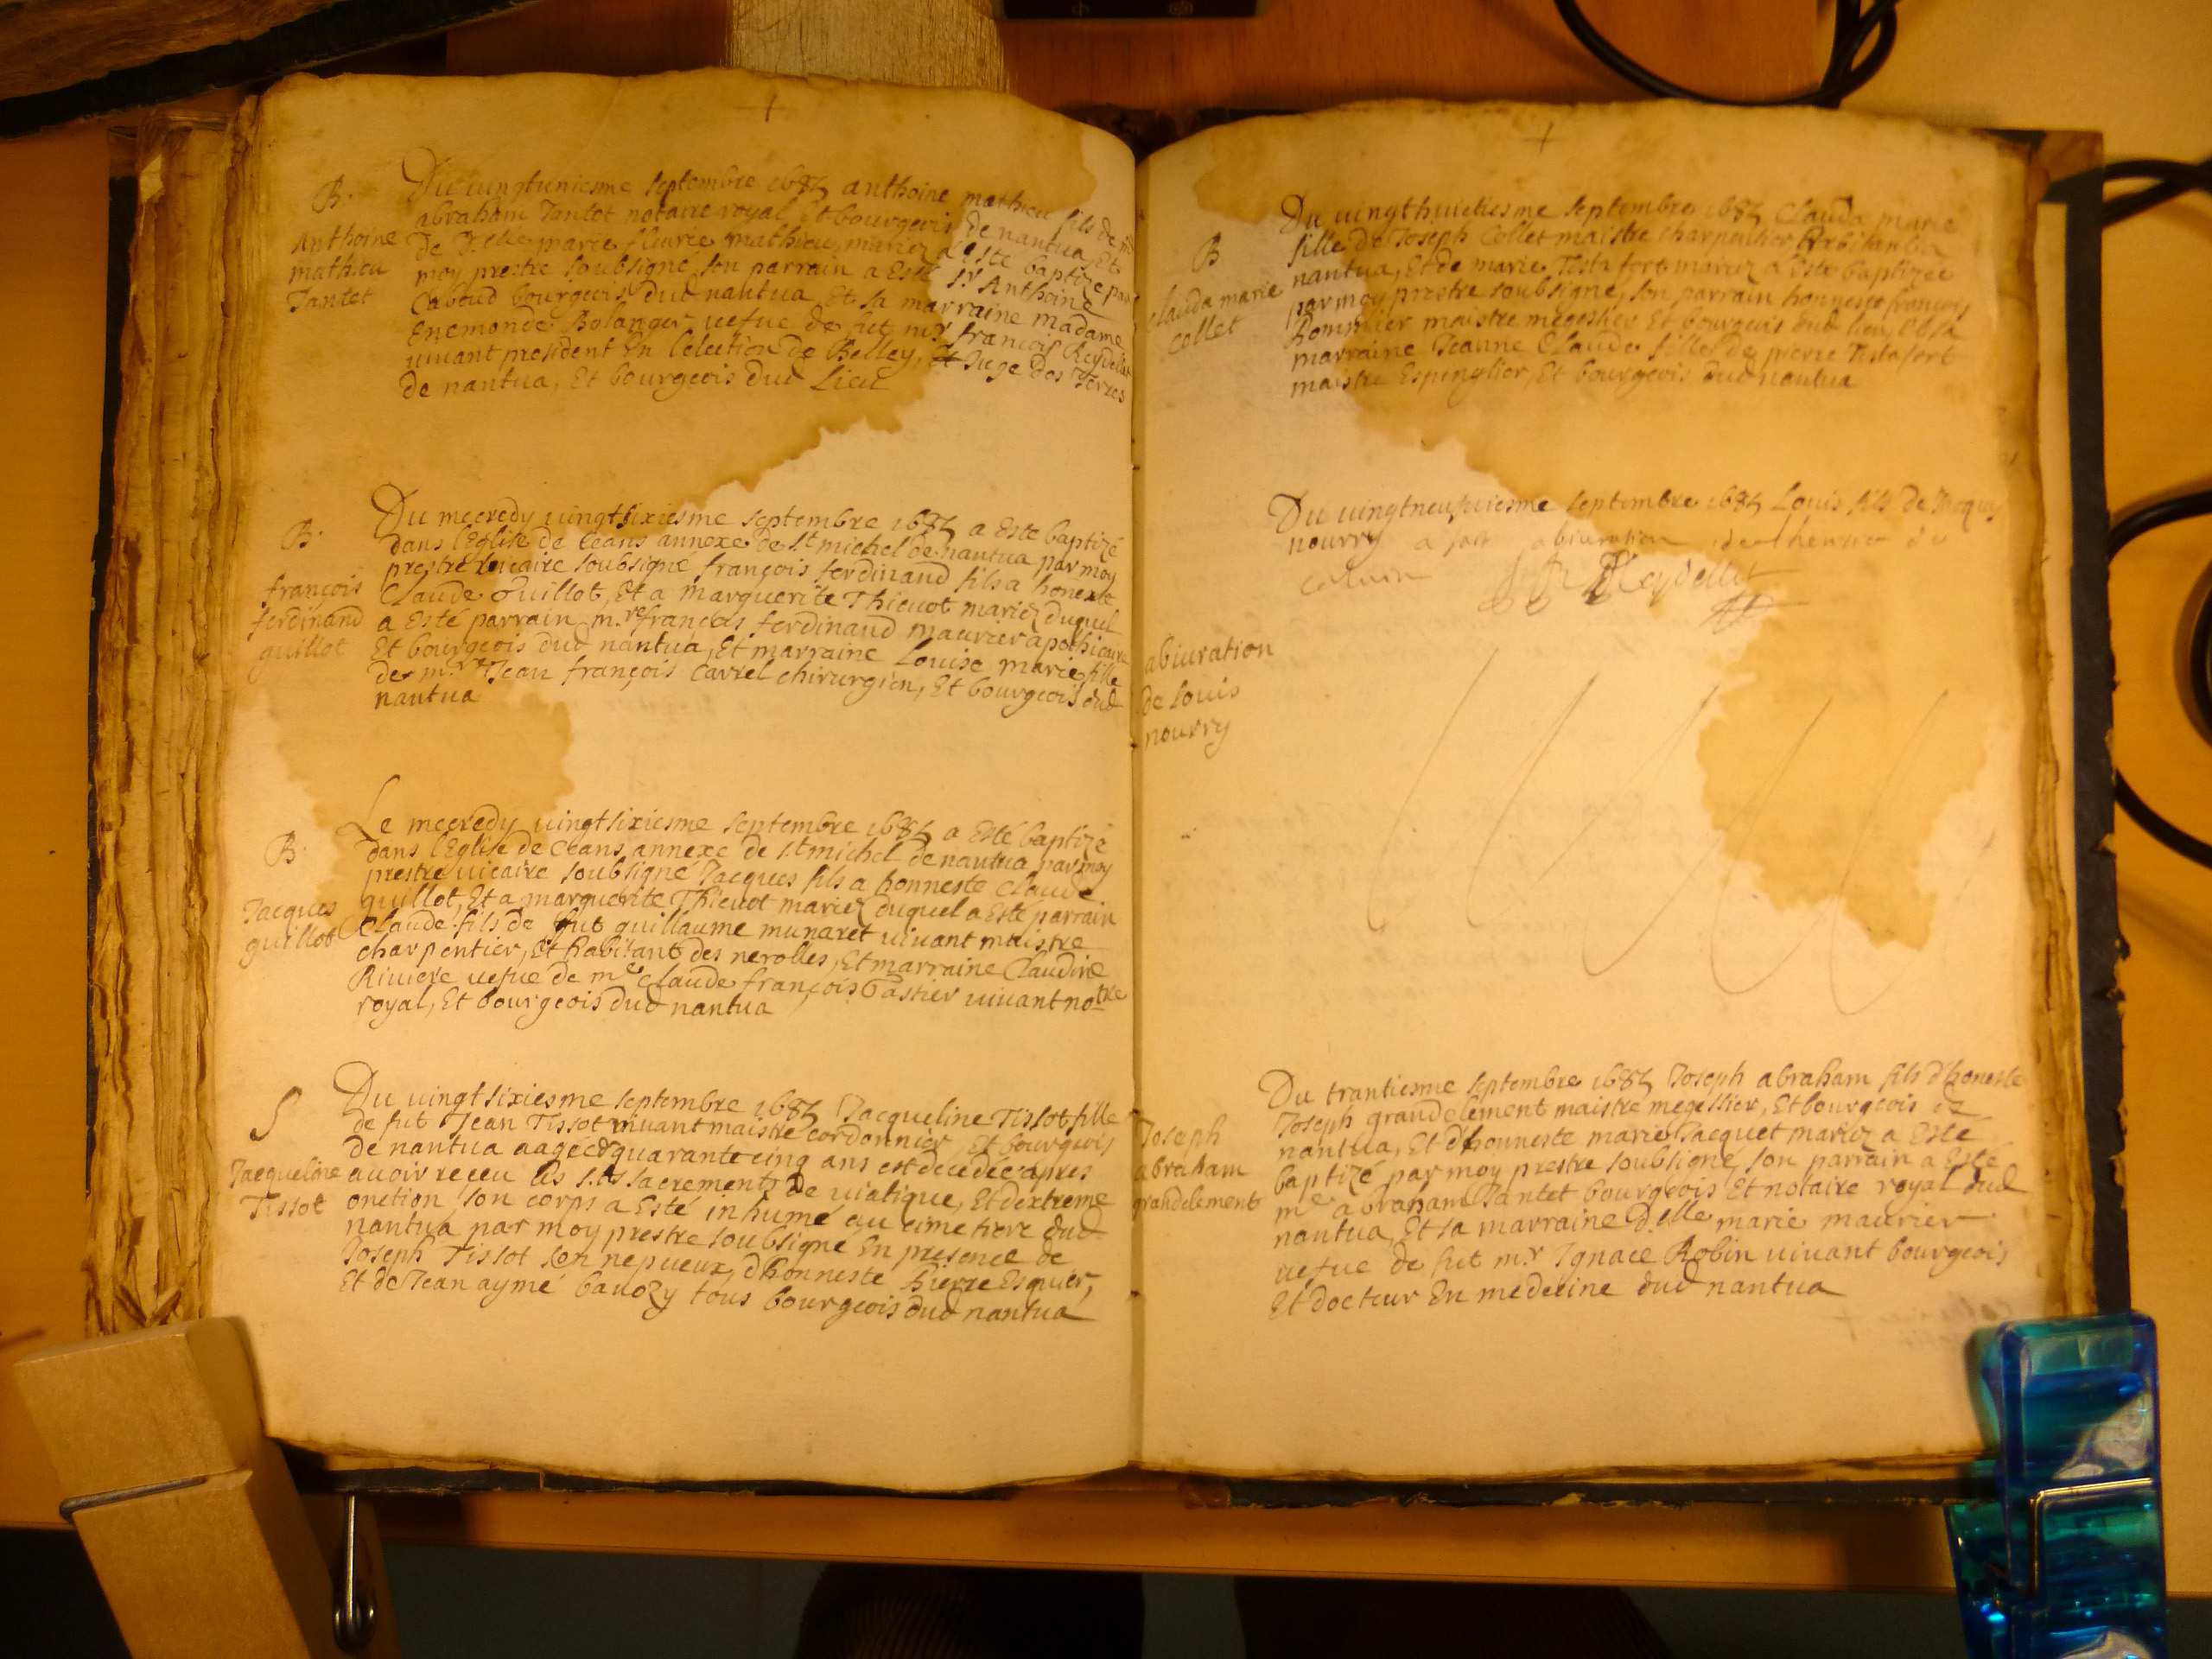 B.
Anthoine
mathieu
Jantet
Du vingtuniesme septembre 1685 anthoine mathieu fils de
abraham Jantet notaire royal, Et bourgeois de nantua, Et
de Delle marie fleurie mathieu mariez a este baptizé par
moy prestre soubsigné, son parrain a Esté Sr Anthoine
Caboud bourgeois dud nantua Et sa marraine madame
Enemonde Bolanger vefue de fut mr françois Reydellet
vivant president En lelection de Belley, Et Juge des Terres
de nantua, Et bourgeois dud Lieu
B.
françois
ferdinand
guillot
Du mecredy vingtsixiesme septembre 1685 a Este baptizé
dans l'Eglise de Ceans annexe de St michel de nantua par moy
prestre vicaire soubsigné françois ferdinand fils a honeste
Claude Guillot, Et a marguerite Thieuot mariez duquel
a Esté parrain m.re françois ferdinand maurier apothicaire
Et bourgeois dud nantua, Et marraine Louise marie fille
de m.re Jean françois Carrel chirurgien, Et bourgeois dud
nantua
B.
Jacques
guillot
Le mecredy vingtsixiesme septembre 1685 a Esté baptizé
dans l'Eglise de Ceans annexe de St michel de nantua par moy
prestre vicaire soubsigné Jacques fils a honneste Claude
guillot, Et a marguerite Thieuot mariez duquel a Esté parrain
Claude fils de fut guillaume munaret vivant maistre
charpentier, Et habitant des nerolles, Et marraine Claudine
Riviere vefue de me Claude françois Pastier vivant notre
royal, Et bourgeois dud nantua
S
Jacqueline
Tissot
Du vingtsixiesme septembre 1685 Jacqueline Tissot fille
de fut Jean Tissot vivant maistre cordonnier, Et bourgeois
de nantua aagée de quarante cinq ans est decedée apres
avoir receu les s.ts sacrements de viatique, Et d'extreme
onction son corps a Esté inhumé au cimetiere dud
nantua par moy prestre soubsigné En presence de
Joseph Tissot son nepueux, d'honneste Pierre Esquier,
Et de Jean aymé bavozy tous bourgeois dud nantua
B
Clauda marie
Collet
Du vingthuictiesme septembre 1685 Clauda marie
fille de Joseph Collet maistre charpentier habitant a
nantua, Et de marie Testafort mariez a Este baptizée
par moy prestre soubsigné, son parrain honneste françois
Pommier maistre megessier Et bourgeois dud lieu, Et sa
marraine Jeanne Claude fille de pierre Testafort
maistre Espinglier, Et bourgeois dud nantua
abiuration
de louis
nourry
Du vingtneufviesme septembre 1685 Louis fils de Jacques
nourry a fait abiuration de lheresie de
Calvin Reydellet
Joseph
abraham
grandclement
Du trantiesme septembre 1685 Joseph abraham fils d'honeste
Joseph grandclement maistre megessier, Et bourgeois de
nantua, Et d'honneste marie Jacquet mariez a Esté
baptizé par moy prestre soubsigné, son parrain a Esté
me abraham Jantet bourgeois Et notaire royal dud
nantua, Et sa marraine Delle marie maurier
vefue de fut m.r Ignace Robin vivant bourgeois
Et docteur En medecine dud nantua